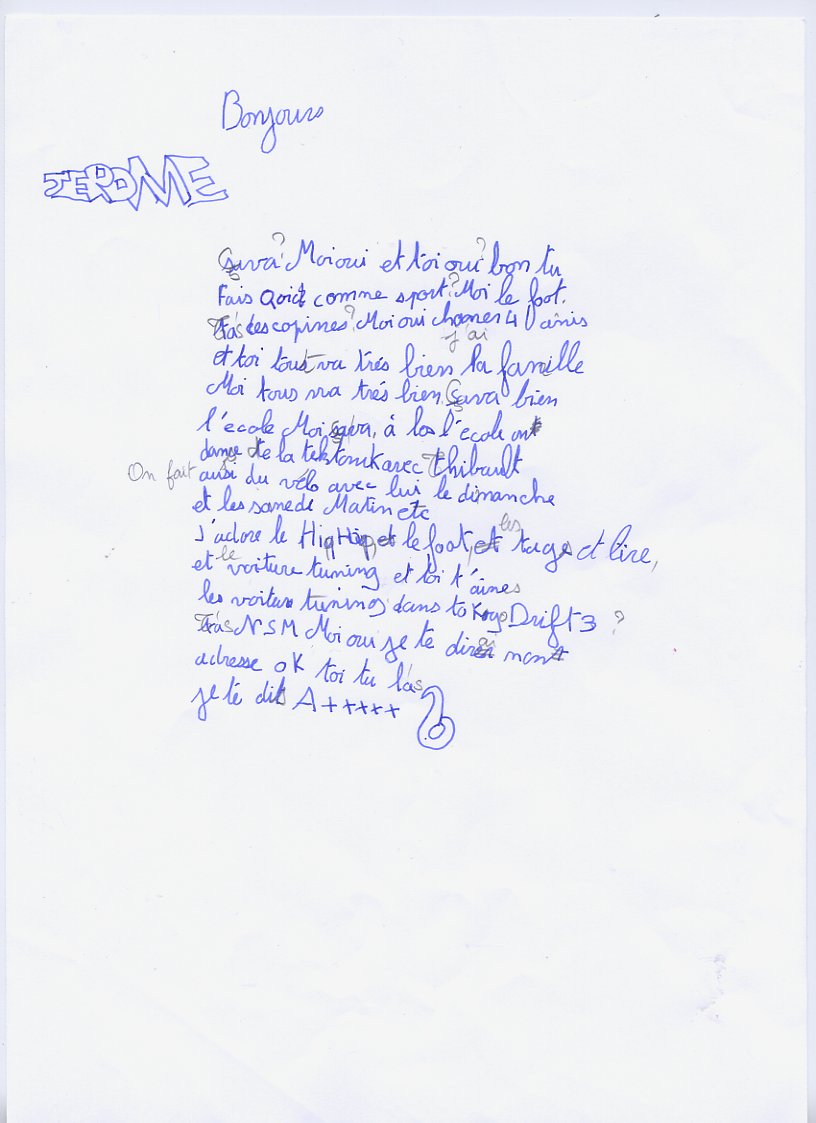 Bonjours
JEROME
Çava? Moi oui et toi oui? bon tu
Fais Qoid comme sport? Moi le foot.
T'as des copines? Moi oui
j'ai
et toi tous va trés bien ta famille
Moi tous va trés bien Çava bien
l'école Moi ça va, à los l'école ont
dance de la tektonik avec Thibault
On fait ausi du vélo avec lui le dimanche
et les samedi Matin etc
J'adore le Hip Hip, et le foot, et les tags et lire,
et le voiture tuning et toi t'aimes
les voiture tuning dans tokyo Drift 3 ?
T'as MSM Moi oui je te dirai mont
adresse ok toi tu l'as
je te dit A+++++